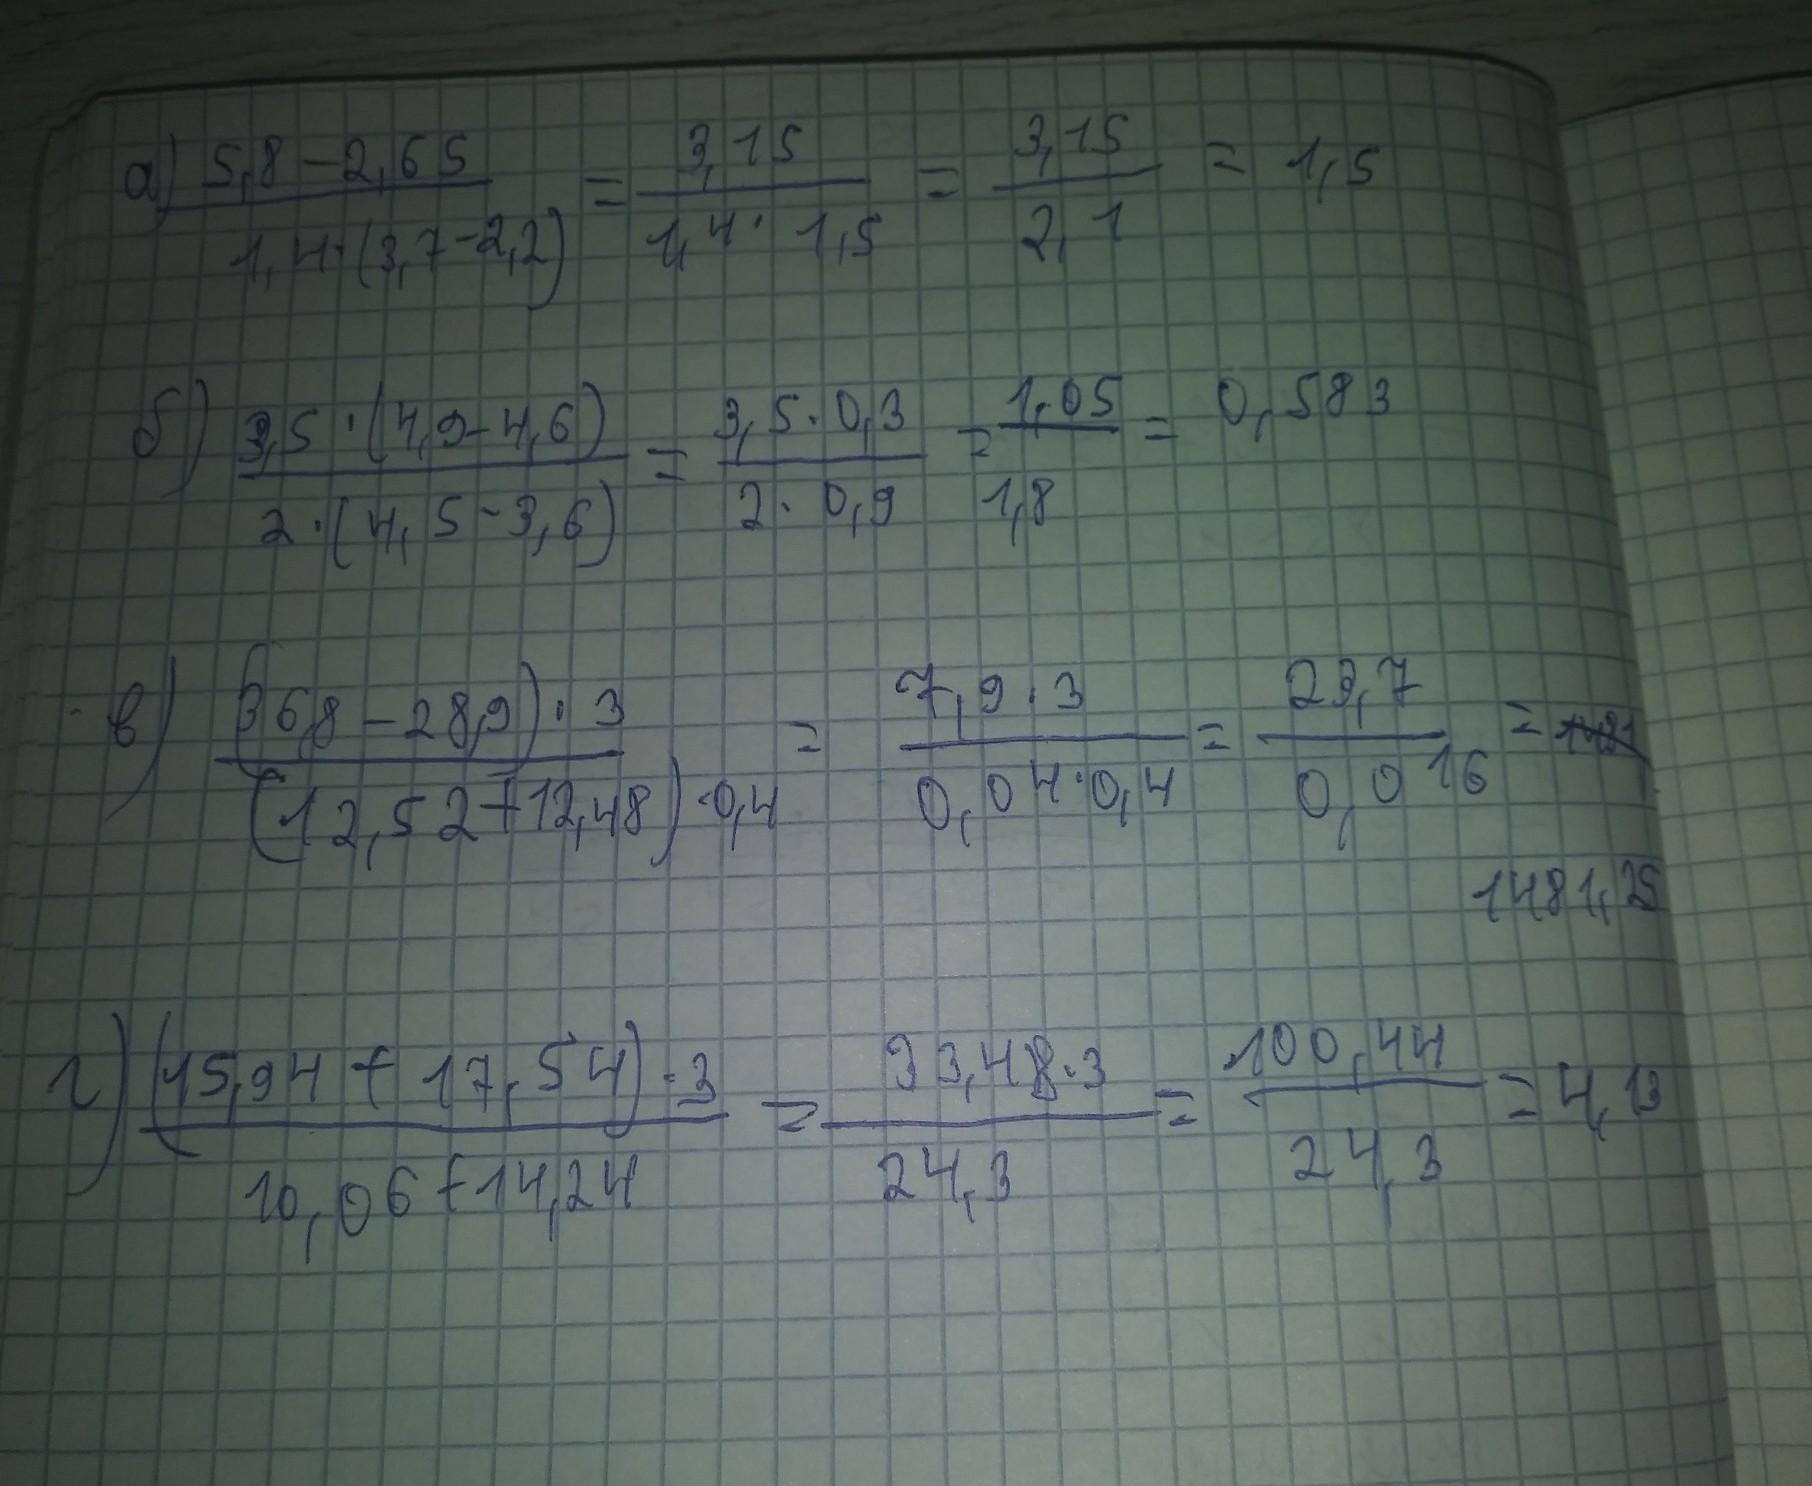 а) 5,8 − 2,65 / 1,4 · (3,7 − 2,2) = 3,15 / 1,4 · 1,5 = 3,15 / 2,1 = 1,5
б) 3,5 · (4,9 − 4,6) / 2 · (4,5 − 3,6) = 3,5 · 0,3 / 2 · 0,9 = 1,05 / 1,8 = 0,583
в) (36,8 − 28,9) · 3 / (12,52 + 12,48) · 0,4 = 7,9 · 3 / 0,04 · 0,4 = 23,7 / 0,016 =
1481,25
г) (15,94 + 17,54) · 3 / 10,06 + 14,24 = 33,48 · 3 / 24,3 = 100,44 / 24,3 = 4,13